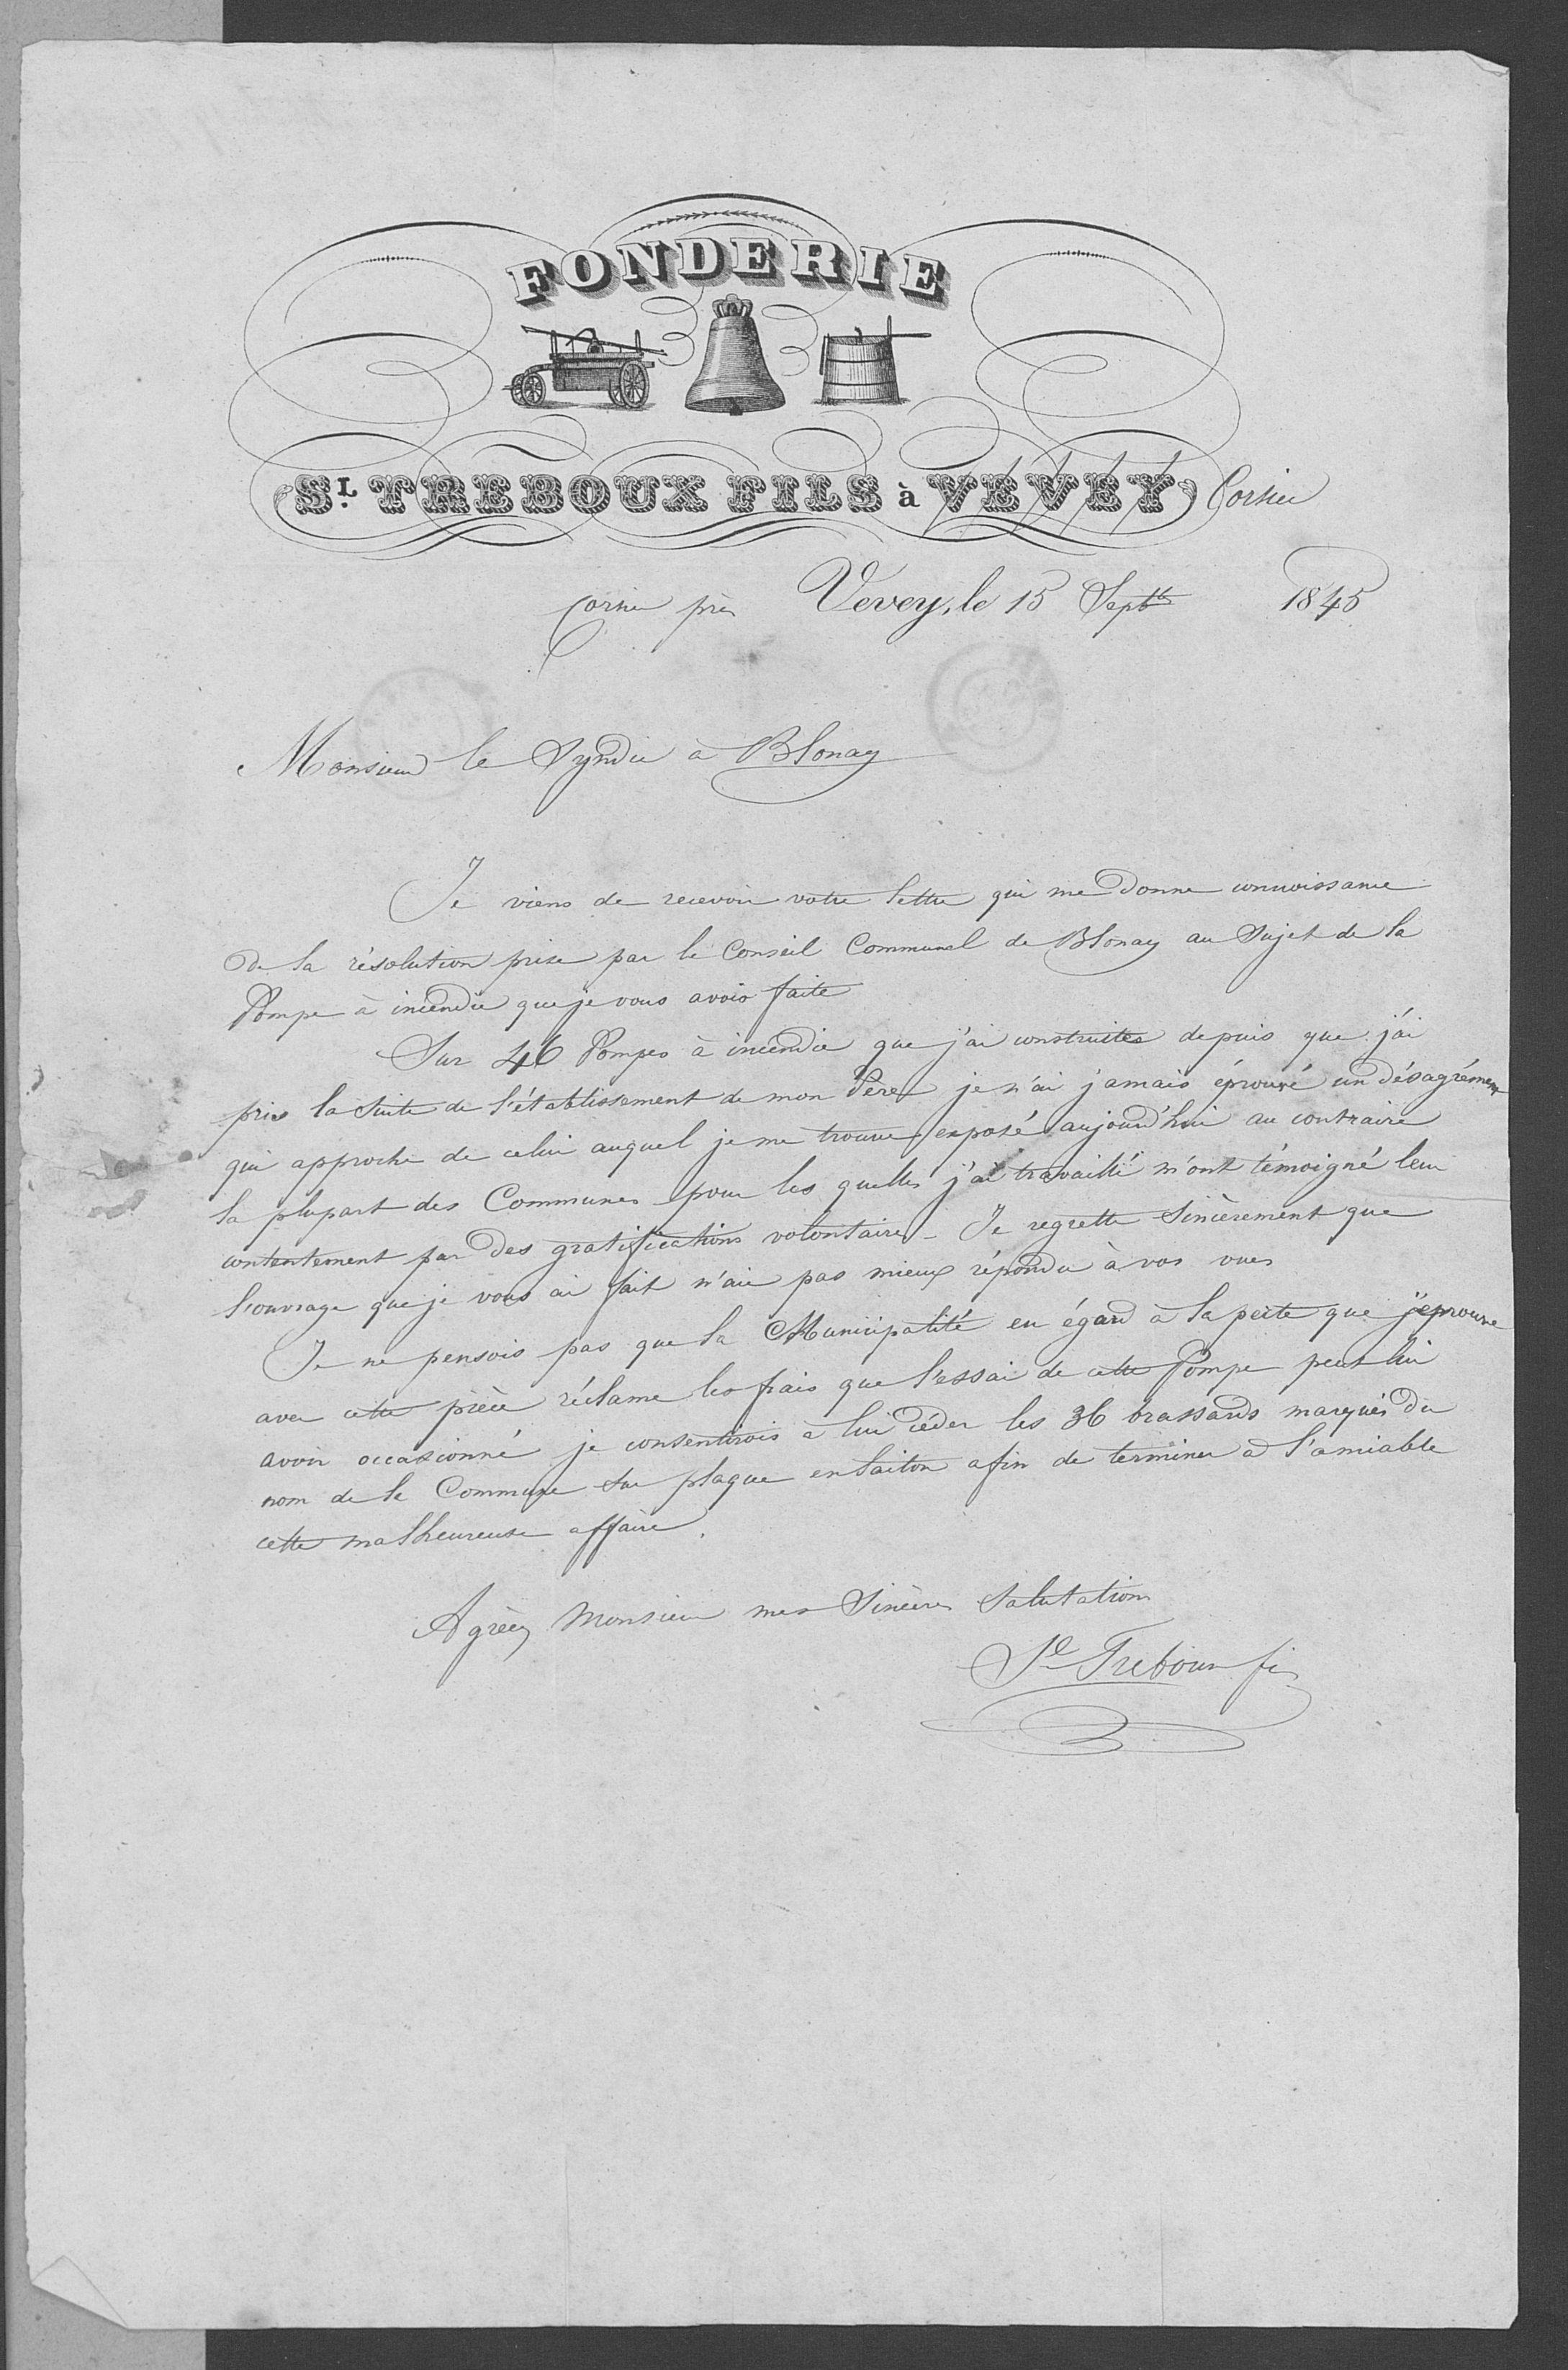 FONDERIE
SL. TREBOUX FILS à VEVEY Corsier
Corsier près Vevey, le 15 Septbre 1845
Monsieur le Syndic à Blonay
Je viens de recevoir votre lettre qui me donne connoissance
de la résolution prise par le Conseil Communal de Blonay au Sujet de la
Pompe à incendie que je vous avois faite
Sur 46 Pompes à incendie que j'ai construites depuis que j'ai
pris la Suite de l'établissement de mon Père je n'ai jamais éprouvé un désagrément
qui approche de celui auquel je me trouve exposé aujourd'hui au contraire
la plupart des Communes pour les quelles j'ai travaillé m'ont témoigné leur
contentement par des gratifications volontaires - Je regrette Sincèrement que
l'ouvrage que je vous ai fait n'aie pas mieux répondu à vos vues
Je ne pensois pas que la Municipalité eu égard à la perte que j'eprouve
avec cette pièce réclame les frais que l'essai de cette Pompe peut lui
avoir occasionné je consentirois à lui céder les 36 brassards marqués du
nom de la Commune Sur plaque en laiton afin de terminer a l'amiable
cette malheureuse affaire.
Agréez Monsieur mes Sincères Salutations
Sl Treboux fils